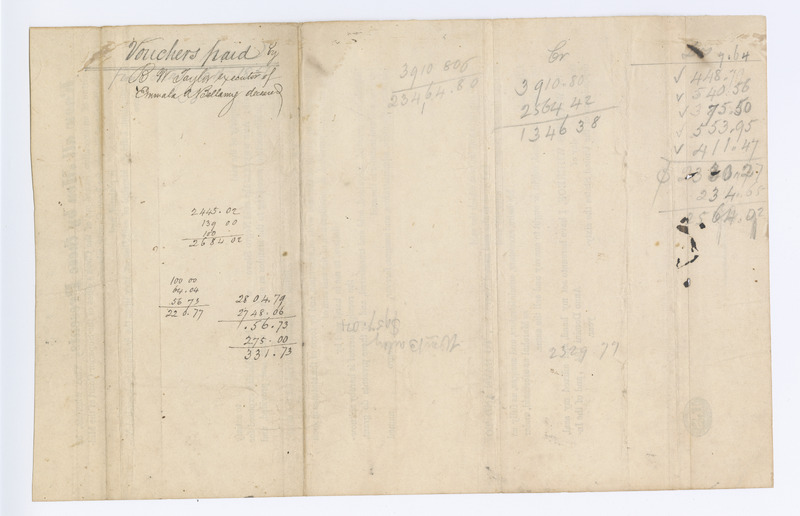 Vouchers paid by
B W Taylor executor of
Emmala A Bellamy deceased
2445.02
139 00
100
2684 02
100 00
64.04
56 73
220.77
2804.79
2748.06
.56.73
275.00
331.73
3910 806
23464.80
Cr
3910.80
2564 42
134638
9.64
448.71
540.56
375.50
553.95
411.47
234.65
2564.92
2329.77